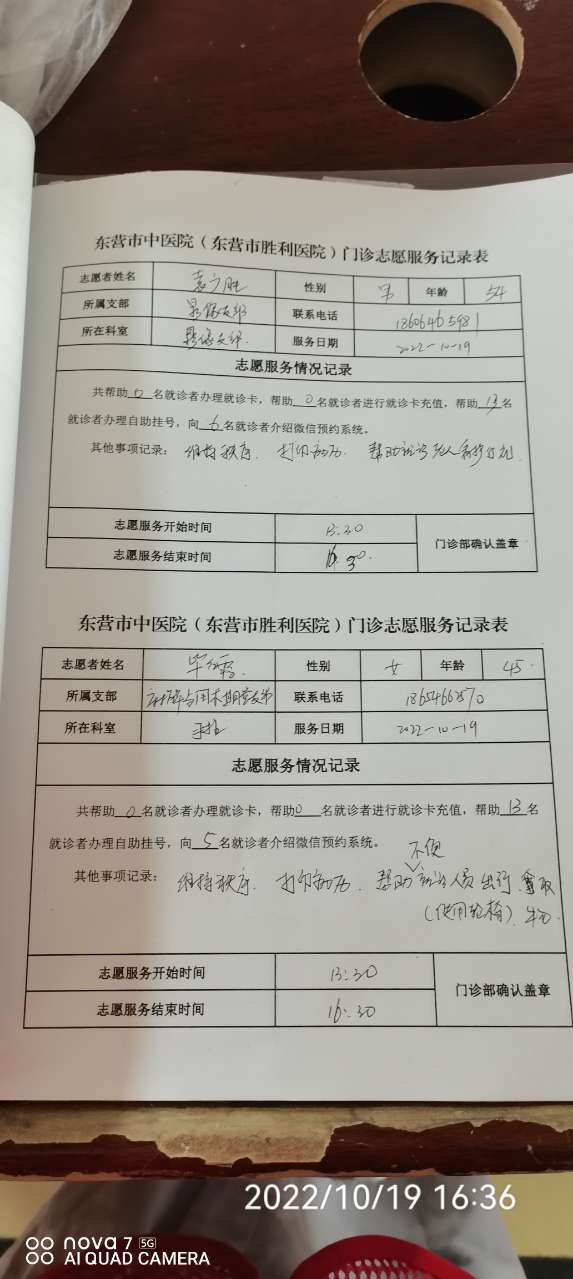 东营市中医院（东营市胜利医院）门诊志愿服务记录表
志愿者姓名 性别 男 年龄 54
所属支部 联系电话 18606465981
所在科室 服务日期 2022-10-19
志愿服务情况记录
共帮助 0 名就诊者办理就诊卡，帮助 0 名就诊者进行就诊卡充值，帮助 13 名
就诊者办理自助挂号，向 6 名就诊者介绍微信预约系统。
其他事项记录： 维持秩序. 打印病历. 帮助就诊老人
志愿服务开始时间 13:30
门诊部确认盖章
志愿服务结束时间 16:30.
东营市中医院（东营市胜利医院）门诊志愿服务记录表
志愿者姓名 性别 女 年龄 45.
所属支部 联系电话
所在科室 服务日期 2022-10-19
志愿服务情况记录
共帮助 0 名就诊者办理就诊卡，帮助 0 名就诊者进行就诊卡充值，帮助 13 名
就诊者办理自助挂号，向 5 名就诊者介绍微信预约系统。
不便
其他事项记录： 维持秩序. 打印病历. 帮助就诊人员出行.
(使用轮椅).
志愿服务开始时间 13:30
门诊部确认盖章
志愿服务结束时间 16:30
2022/10/19 16:36
nova 7 5G
AI QUAD CAMERA